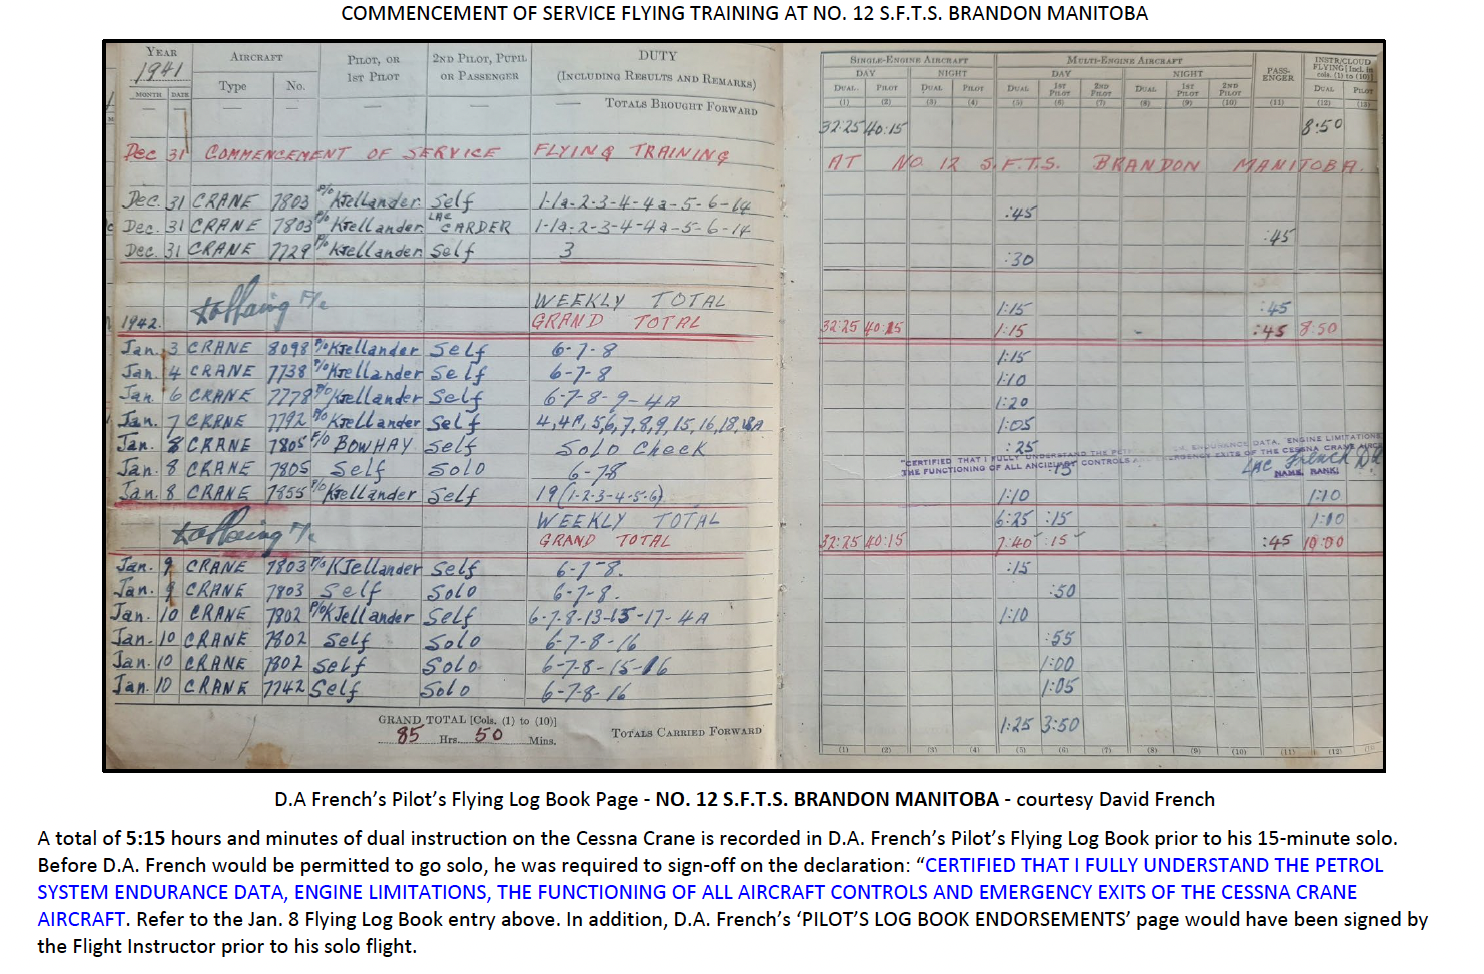 COMMENCEMENT OF SERVICE FLYING TRAINING AT NO. 12 S.F.T.S. BRANDON MANITOBA
YEAR 1941 AIRCRAFT PILOT, OR 1ST PILOT 2ND PILOT, PUPIL OR PASSENGER DUTY (INCLUDING RESULTS AND REMARKS) SINGLE-ENGINE AIRCRAFT MULTI-ENGINE AIRCRAFT PASSENGER INSTR/CLOUD FLYING [Incl. in cols. (1) to (10)]
MONTH DATE Type No. DAY NIGHT DAY NIGHT
DUAL PILOT DUAL PILOT DUAL 1ST PILOT 2ND PILOT DUAL 1ST PILOT 2ND PILOT DUAL PILOT
(1) (2) (3) (4) (5) (6) (7) (8) (9) (10) (11) (12) (13)
— — — — — — — TOTALS BROUGHT FORWARD 32:25 40:15 8:50
Dec 31 COMMENCEMENT OF SERVICE FLYING TRAINING AT NO 12 S.F.T.S. BRANDON MANITOBA.
Dec. 31 CRANE 7803 P/O Kjellander Self 1-1a-2-3-4-4a-5-6-14 :45
Dec. 31 CRANE 7803 P/O Kjellander LAC CARDER 1-1a-2-3-4-4a-5-6-14 :45
Dec. 31 CRANE 7729 P/O Kjellander Self 3 :30
F/L WEEKLY TOTAL 1:15 :45
1942. GRAND TOTAL 32:25 40:15 1:15 - :45 8:50
Jan. 3 CRANE 8098 P/O Kjellander Self 6-7-8 1:15
Jan. 4 CRANE 7738 P/O Kjellander Self 6-7-8 1:10
Jan 6 CRANE 7778 P/O Kjellander Self 6-7-8-9-4A 1:20
Jan. 7 CRANE 7792 P/O Kjellander Self 4, 4A, 5, 6, 7, 8, 9, 15, 16, 18, 18A 1:05
Jan. 8 CRANE 7805 F/O BOWHAY Self SOLO CHECK :25
"CERTIFIED THAT I FULLY UNDERSTAND THE ENDURANCE DATA, ENGINE LIMITATIONS
THE FUNCTIONING OF ALL CONTROLS EMERGENCY EXITS OF THE CESSNA CRANE
LAC French DA
NAME, RANK:
Jan. 8 CRANE 7805 Self SOLO 6-78 :15
Jan. 8 CRANE 7855 P/O Kjellander Self 19 (1-2-3-4-5-6) 1:10 1:10
F/L WEEKLY TOTAL 6:25 :15 1:10
GRAND TOTAL 32:25 40:15 7:40 :15 :45 10:00
Jan. 9 CRANE 7803 P/O KJellander Self 6-7-8. :15
Jan. 9 CRANE 7803 Self SOLO 6-7-8. :50
Jan. 10 CRANE 7802 P/O KJellander Self 6-7-8-13-15-17-4A 1:10
Jan. 10 CRANE 7802 Self Solo 6-7-8-16 :55
Jan. 10 CRANE 7802 Self SOLO 6-7-8-15-16 1:00
Jan. 10 CRANE 7742 Self Solo 6-7-8-16 1:05
GRAND TOTAL [Cols. (1) to (10)]
85 Hrs. 50 Mins. TOTALS CARRIED FORWARD 1:25 3:50
(1) (2) (3) (4) (5) (6) (7) (8) (9) (10) (11) (12)
D.A French’s Pilot’s Flying Log Book Page - NO. 12 S.F.T.S. BRANDON MANITOBA - courtesy David French
A total of 5:15 hours and minutes of dual instruction on the Cessna Crane is recorded in D.A. French’s Pilot’s Flying Log Book prior to his 15-minute solo.
Before D.A. French would be permitted to go solo, he was required to sign-off on the declaration: “CERTIFIED THAT I FULLY UNDERSTAND THE PETROL
SYSTEM ENDURANCE DATA, ENGINE LIMITATIONS, THE FUNCTIONING OF ALL AIRCRAFT CONTROLS AND EMERGENCY EXITS OF THE CESSNA CRANE
AIRCRAFT. Refer to the Jan. 8 Flying Log Book entry above. In addition, D.A. French’s ‘PILOT’S LOG BOOK ENDORSEMENTS’ page would have been signed by
the Flight Instructor prior to his solo flight.